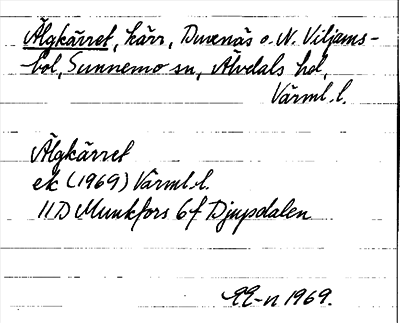 Älgkärret, kärr, Duvenäs o. N. Viljams-
bol, Sunnemo sn, Älvdals hd,
Värml. l.
Älgkärret
ek (1969) Värml. l.
11D Munkfors 6f Djupsdalen
1969.